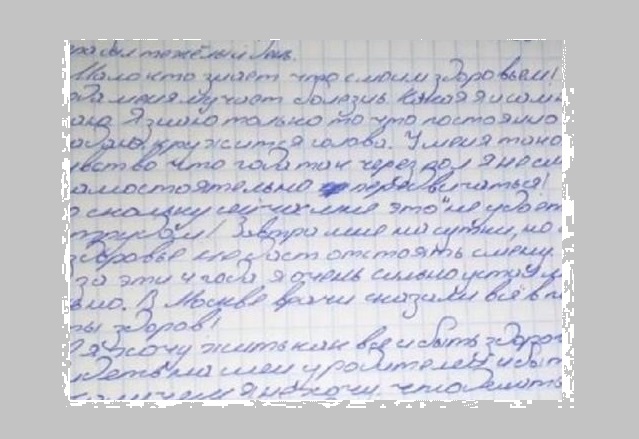 был тяжёлый день.
Мало кто знает что с моим здоровьем!
меня мучает болезнь. Какая я и сам
Я знаю только то что постоянно
кружится голова. У меня тако
вство что года так через пол я не см
амостоятельно передвигаться!
скольку сейчас мне это не удаёт
трудом! Завтра мне на сутки, но
здоровье не даст отстоять смену.
за эти 4 года я очень сильно устал
ьно. В Москве врачи сказали всё в п
ты здоров!
я хочу жить как все и быть здоро
идеть на шеи у родителей и быт
я не хочу. что делать